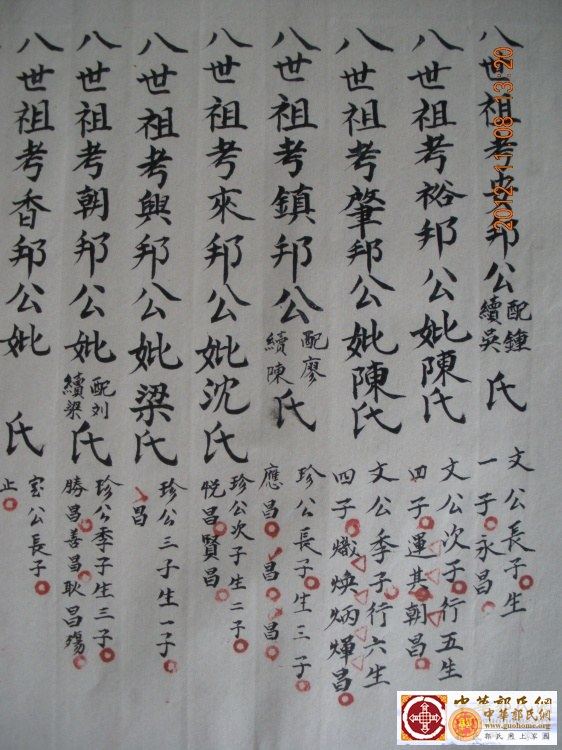 八世祖考 邦公 配鍾 續吳 氏
文公長子生
一子永昌
八世祖考裕邦公妣陳氏
文公次子行五生
四子運其朝昌
八世祖考肇邦公妣陳氏
文公季子行六生
四子熾煥炳煇昌
八世祖考鎮邦公 配廖 續陳 氏
珍公長子生三子
應昌 昌 昌
八世祖考來邦公妣沈氏
珍公次子生二子
悦昌賢昌
八世祖考興邦公妣梁氏
珍公三子生一子
昌
八世祖考朝邦公妣 配刘 續梁 氏
珍公季子生三子
勝昌善昌耿昌殤
八世祖考香邦公妣 氏
公長子
止
2012-11-08 13:20
中華郭氏網
中華郭氏網
www.guohome.org
郭氏网上家園